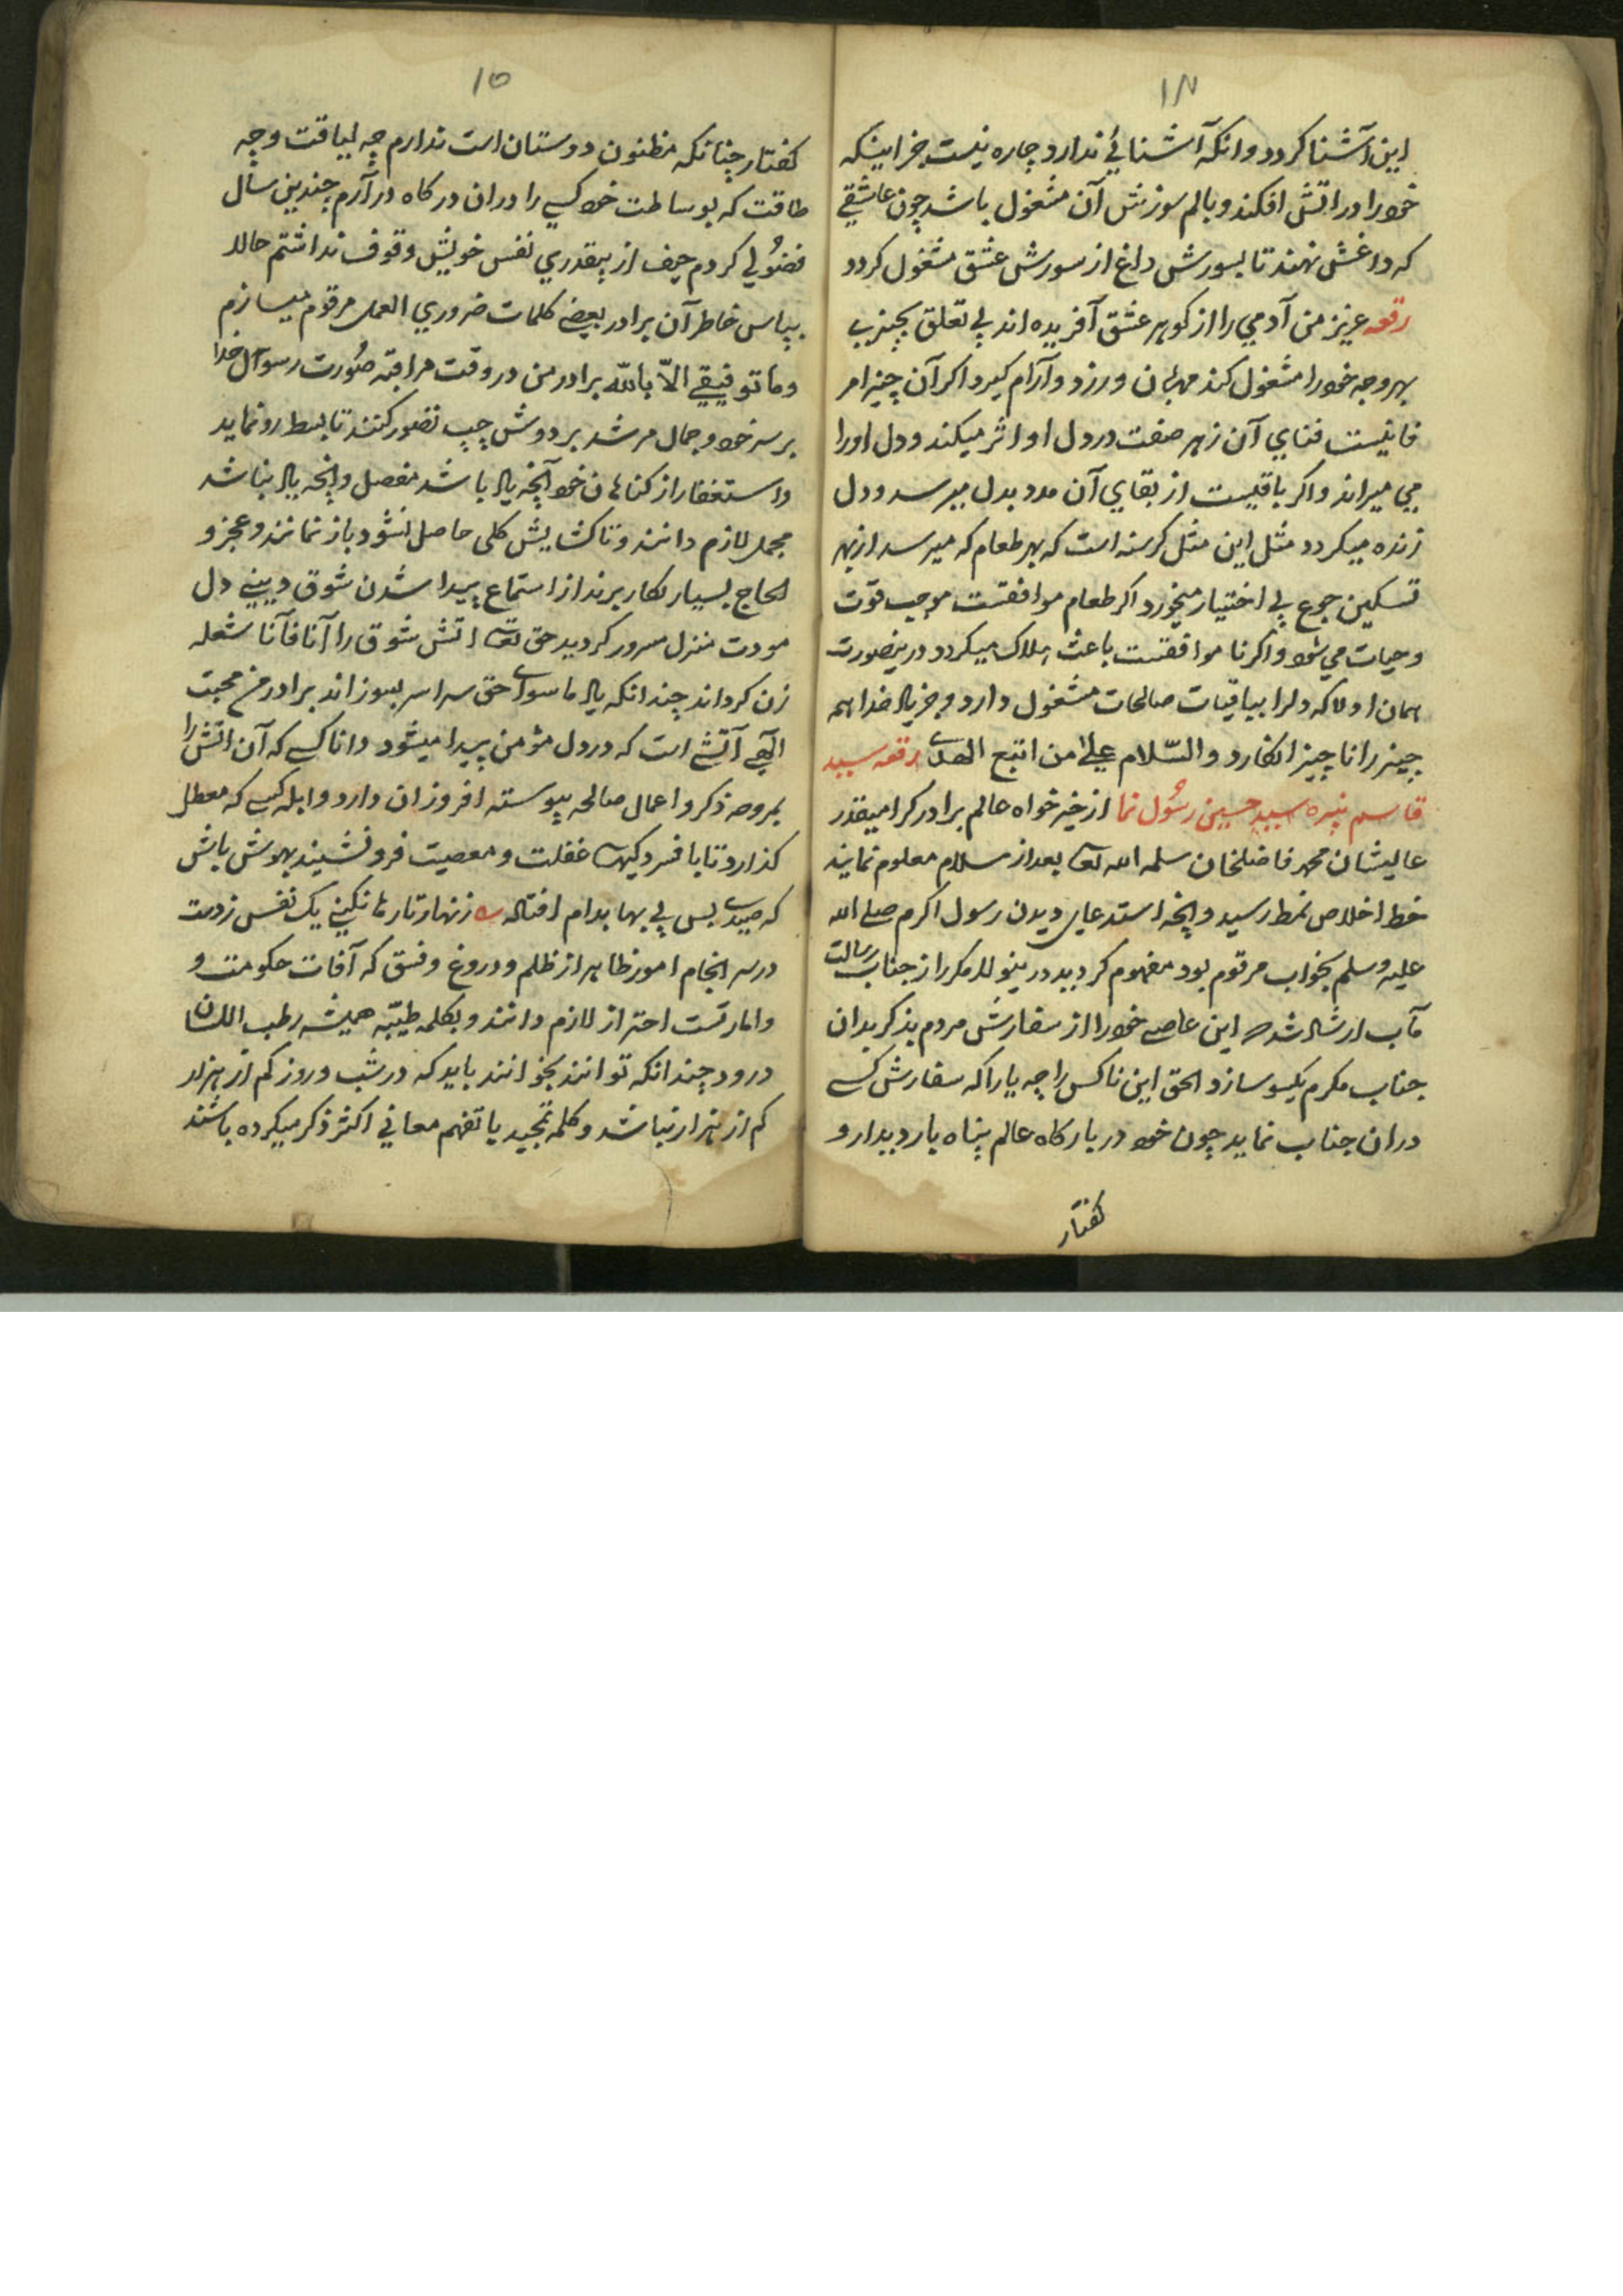 ۱۴
این آشنا کردد وانکه آشنائے ندارد چاره نیست جز اینکه
خود را در اتش افکند و بالم سوزنش آن مشغول باشد چون عاشقے
که داغش نهند تا بسورش داغ از سورش عشق مشغول کردد
رقعه عزیز من آدمي را از کوهر عشق آفریده اند بي تعلق بچیزے
بهر وجه خود را مشغول کند مهان ورزد و آرام کیرد اکر آن چیز امر
فانیست فناي آن زهر صفت در دل او اثر میکند و دل او را
مي میراند و اکر باقیست از بقاي آن مدد بدل میرسد و دل
زنده میکردد مثل این مثل کرسنه است که بهر طعام که میرسد از بهر
تسکین جوع بي اختیار میخورد اکر طعام موافقست موجب قوت
و حیات مي شود و اکر نا موافقست باعث هلاک میکردد درینصورت
همان اولا که دلرا بباقیات صالحات مشغول دارد و جز یاد خدا همه
چیز را ناچیز انکارد والسّلام علیٰ من اتبع الهدےٰ رقعه سید
قاسم نبیره سید حسین رسُول نما از خیر خواه عالم برادر کرامیقدر
عالیشان محمد فاضلخان سلمه الله تعا بعد از سلام معلوم نمایند
خط اخلاص نمط رسید و انچه استدعاي دیدن رسول اکرم صلے الله
علیه وسلم بخواب مرقوم بود مفهوم کردید درینولا مکرر از جناب رسالت
مآب ارشاد شده این عاصے خود را از سفارش مردم بذکر بدان
جناب مکرم یکسو سازد الحق این ناکس را چه یارا که سفارش کسے
دران جناب نماید چون خود در بارکاه عالم پناه بار دیدار و
کفتار
۱۵
کفتار چنانکه مظنون دوستان است ندارم چه لیاقت و چه
طاقت که بوساطت خود کسے را دران درکاه درآرم چندین سال
فضُولي کردم حیف از بیقدري نفس خویش وقوف نداشتم حالا
بپاس خاطر آن برادر بعضے کلمات ضروري العمل مرقوم میسازم
وما توفیقے الاّ باللّه برادر من در وقت مراقبه صُورت رسول خدا
بر سر خود و جمال مرشد بر دوش چپ تصور کنند تا بسط رو نماید
و استغفار از کناهان خود آنچه یاد باشد مفصل و انچه یاد نباشد
مجمل لازم دانند و تا کشایش کلی حاصل نشود باز نمانند و عجز و
الحاح بسیار بکار برند از استماع پیدا شدن شوق دیني دل
مودت منزل مسرور کردید حق تعا اتش شوق را آنا فآنا شعله
زن کرداند چندانکه یاد ما سواے حق سراسر بسوزاند برادر من محبت
الٓهي آتشے است که در دل مؤمن پیدا میشود و انا کسے که آن اتش را
بمروحه ذکر و اعمال صالحه پیوسته افروزان دارد و ابله کسے که معطل
کذارد تا بافسردکیهاے غفلت و معصیت فرو نشیند بهوش باش
که صیدے بس بي بها بدام افتاد ه زنهار تا رها نکنے یک نفس ز دست
در سر انجام امور ظاهر از ظلم و دروغ و فسق که آفات حکومت و
و امارتست احتراز لازم دانند و بکلمه طیّبه همیشه رطب اللسان
درود چندانکه توانند بخوانند باید که در شب و روز کم از هزار
کم از هزار نباشد و کلمه تمجید با تفهم معاني اکثر ذکر میکرده باشند